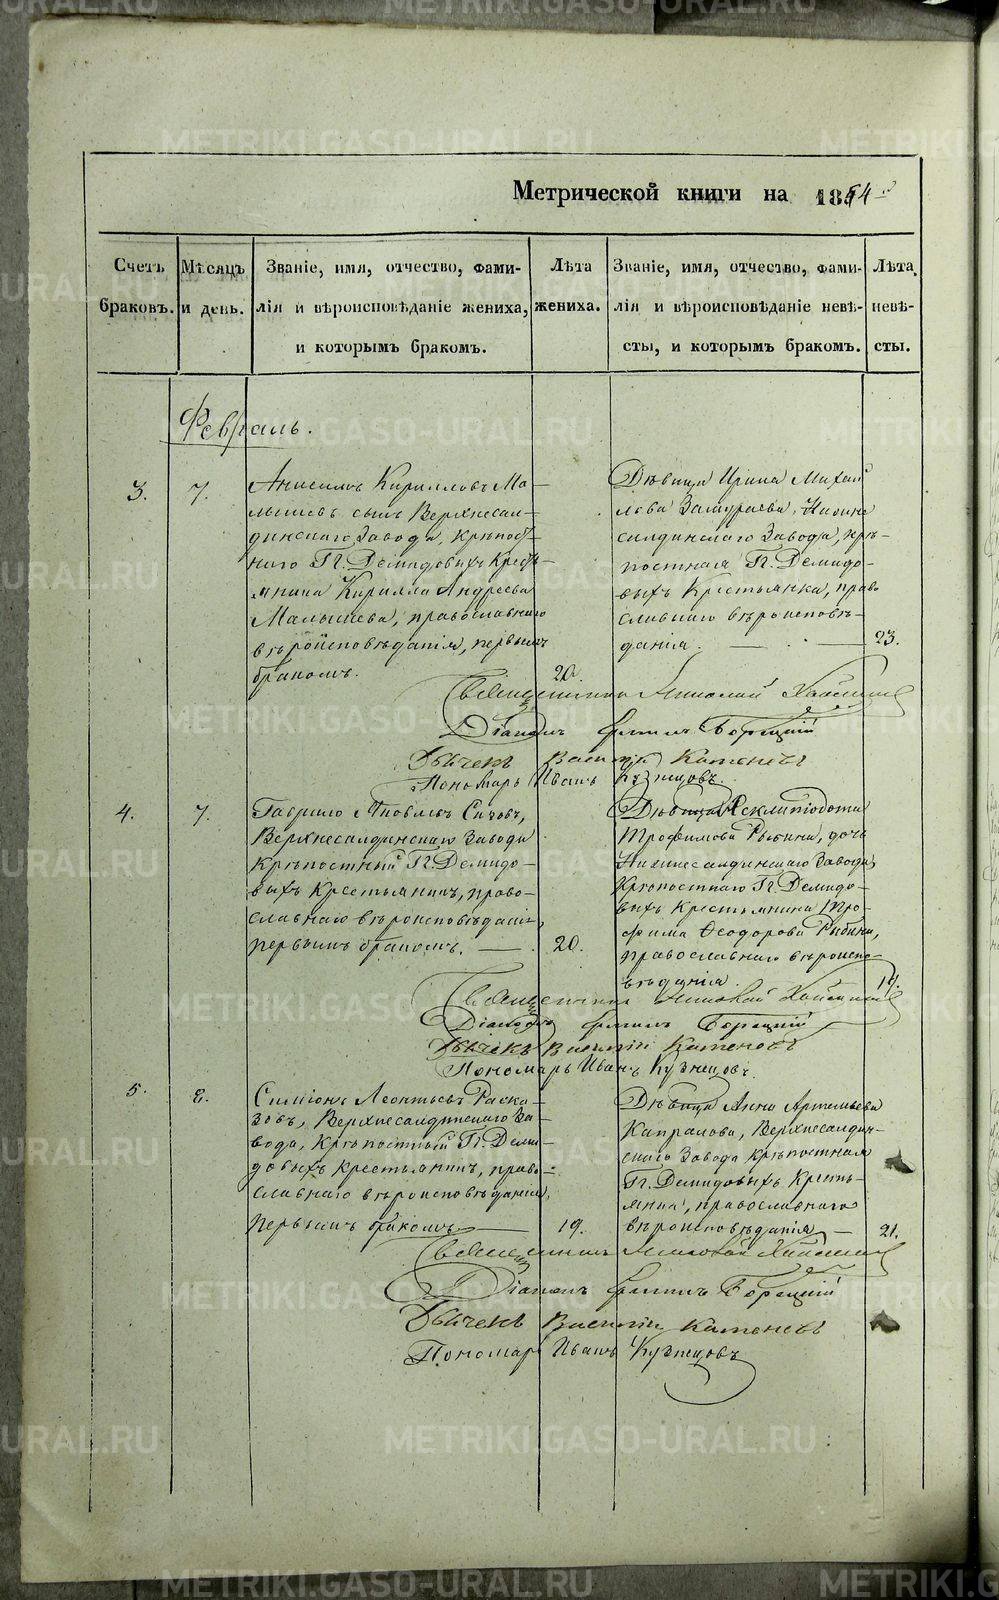 METRIKI.GASO-URAL.RU
Метрической книги на 1854 г
Счетъ браковъ.
Мѣсяцъ и день.
Званіе, имя, отчество, фами-
лія и вѣроисповѣданіе жениха,
и которымъ бракомъ.
Лѣта жениха.
Званіе, имя, отчество, фами-
лія и вѣроисповѣданіе невѣ-
сты, и которымъ бракомъ.
Лѣта невѣ-
сты.
Февраль.
3.
7.
Анисимъ Кирилловъ Ма-
лышевъ сынъ Верхнесал-
динскаго Завода, крѣпост-
наго Гг. Демидовыхъ Кресть-
янина Кирилла Андреева
Малышева, православнаго
вѣроисповѣданія, первымъ
бракомъ.
20.
Дѣвица Ирина Михай
лова Замураева, Нижне
салдинскаго Завода, крѣ-
постная Гг. Демидо-
выхъ Крестьянка, право
славнаго вѣроисповѣ-
данія.
23.
Священникъ Николай
Діаконъ Борецкій
Дьячекъ Василій Каменевъ
Пономарь Иванъ Кузнецовъ.
4.
7.
Гаврило Яковлевъ Сизовъ,
Верхнесалдинскаго Завода
Крѣпостный Гг. Демидо-
выхъ Крестьянинъ, право-
славнаго вѣроисповѣданія,
первымъ бракомъ.
20.
Дѣвица
Трофимова Рыбина, дочь
Нижнесалдинскаго Завода,
Крѣпостнаго Гг. Демидо-
выхъ Крестьянина Тро-
фима Ѳеодорова Рыбина,
православнаго вѣроиспо-
вѣданія.
Священникъ Николай
Діаконъ Борецкій
Дьячекъ Василій Каменевъ
Пономарь Иванъ Кузнецовъ.
5.
8.
Симіонъ Леонтьевъ Раска-
зовъ, Верхнесалдинскаго За-
вода, Крѣпостный Гг. Деми-
довыхъ крестьянинъ, право-
славнаго вѣроисповѣданія,
первымъ бракомъ
19.
Дѣвица Анна Артемьева
Капралова, Верхнесалдин-
скаго Завода крѣпостная
Гг. Демидовыхъ Кресть-
янка, православнаго
вѣроисповѣданія
21.
Священникъ Николай
Діаконъ Борецкій
Дьячекъ Василій Каменевъ
Пономарь Иванъ Кузнецовъ